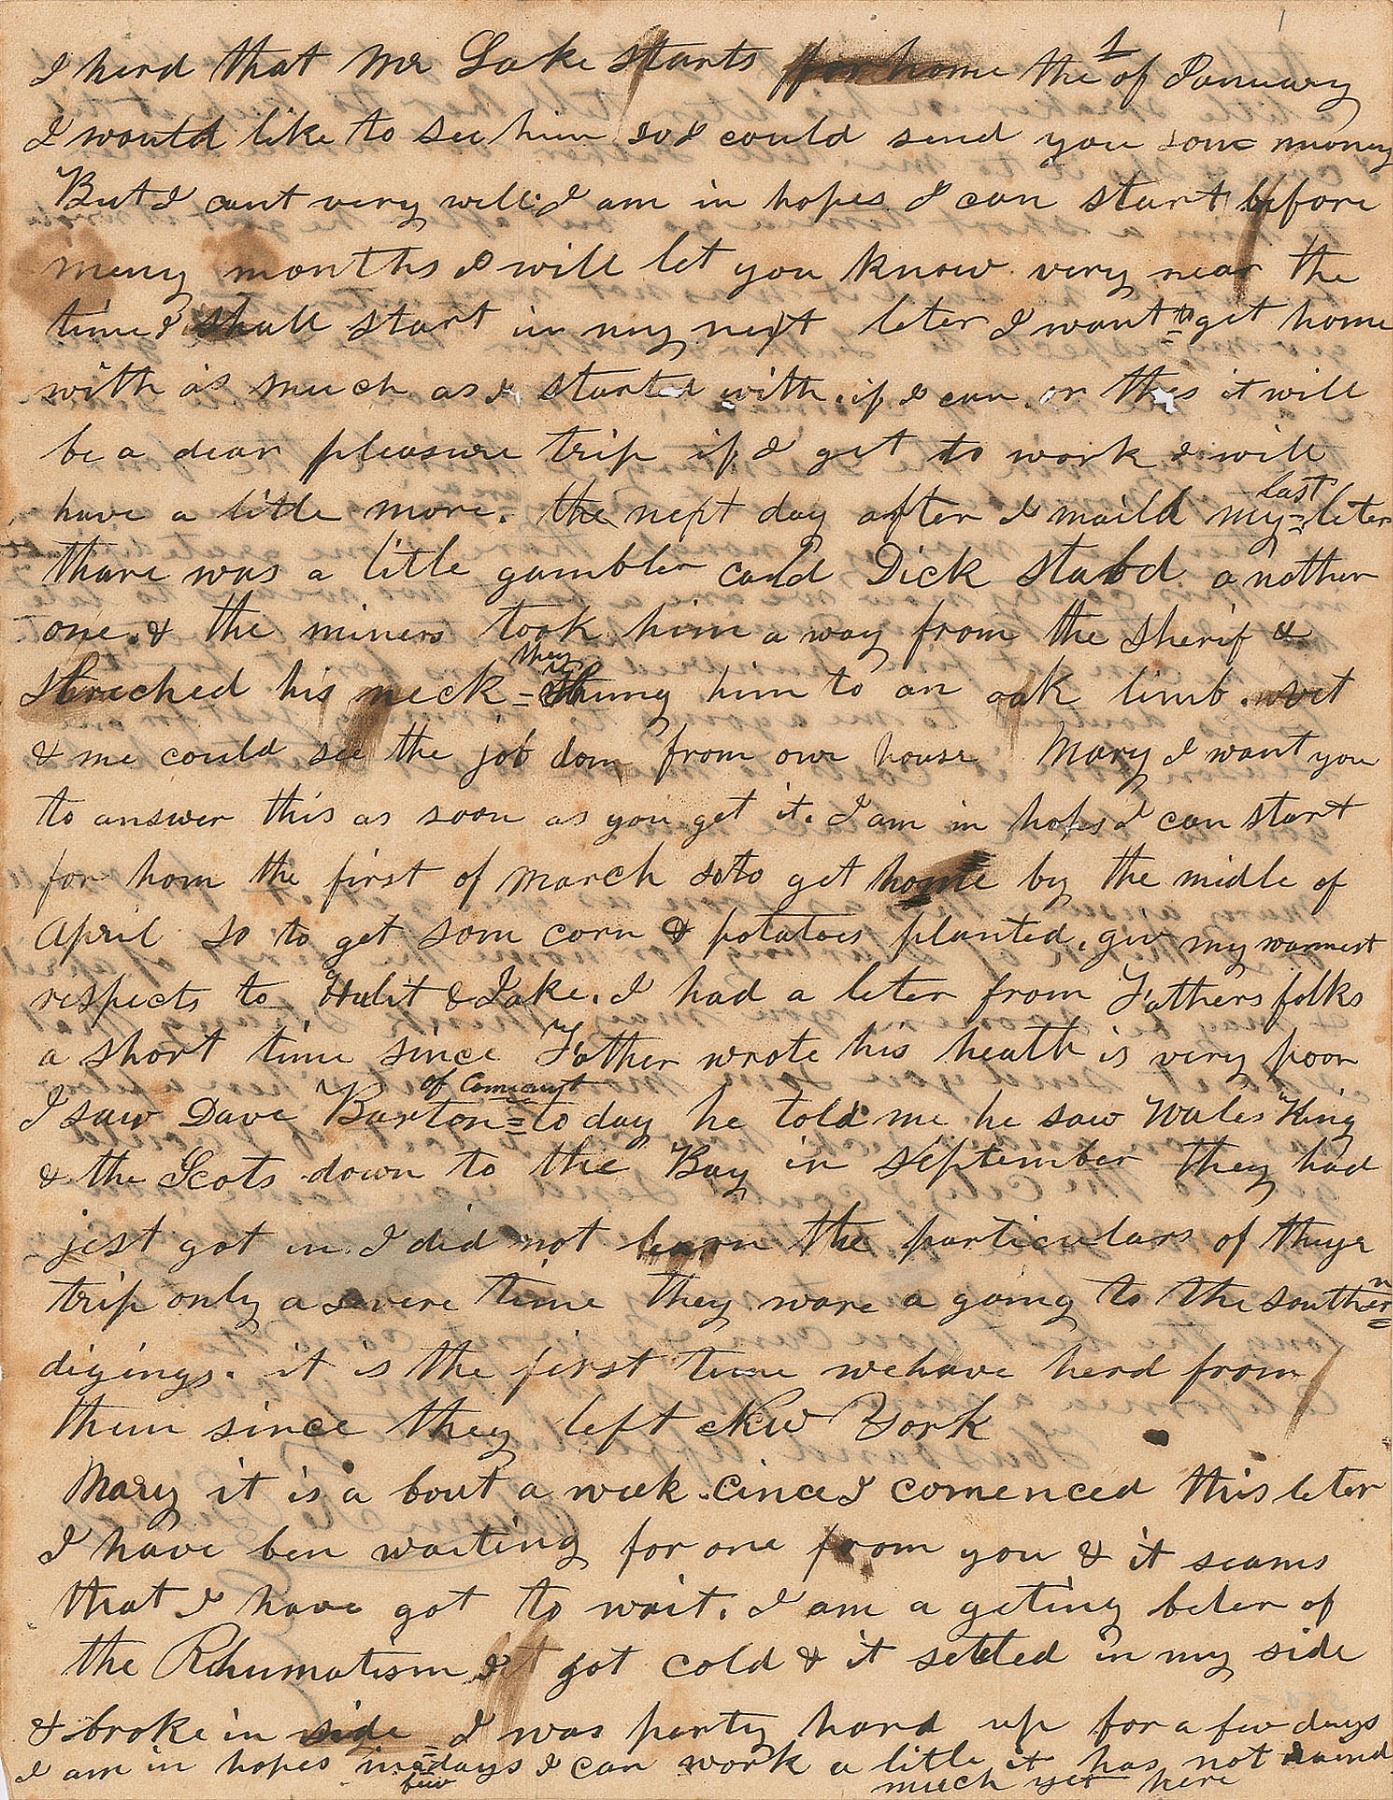 I herd that Mr Lake starts for home the 1 of January
I would like to see him so I could send you som money
But I cant very well. I am in hopes I can start before
meny months I will let you know very near the
time I shall start in my next leter I want to get home
with as much as I started with if I can or this it will
be a dear pleasure trip if I get to work I will
have a little more. the next day after I maild my last leter
thare was a litle gambler cald Dick stabd another
one. & the miners took him a way from the sherif &
streched his neck they hung him to an oak limb.
& me could see the job don from our house Mary I want you
to answer this as soon as you get it. I am in hopes I can start
for hom the first of march so to get home by the midle of
April so to get som corn & potatoes planted. giv my warmest
respects to Hulit & Jake. I had a leter from Fathers folks
a short time since Father wrote his heath is very poor
I saw Dave Barton of Comcaut to day he told me he saw Wales King
& the Scots down to the Bay in September they had
jest got in. I did not learn the particulars of thayr
trip only a severe time they ware a going to the southern
digings. it is the first time we have herd from
them since they left New York
Mary it is a bout a week cince I comenced this leter
I have ben waiting for one from you & it seams
that I have got to wait. I am a geting beter of
the Rhumatism I got cold & it setled in my side
& broke in side I was party hard up for a few days
I am in hopes in a few days I can work a litle it has not raind
much yet here